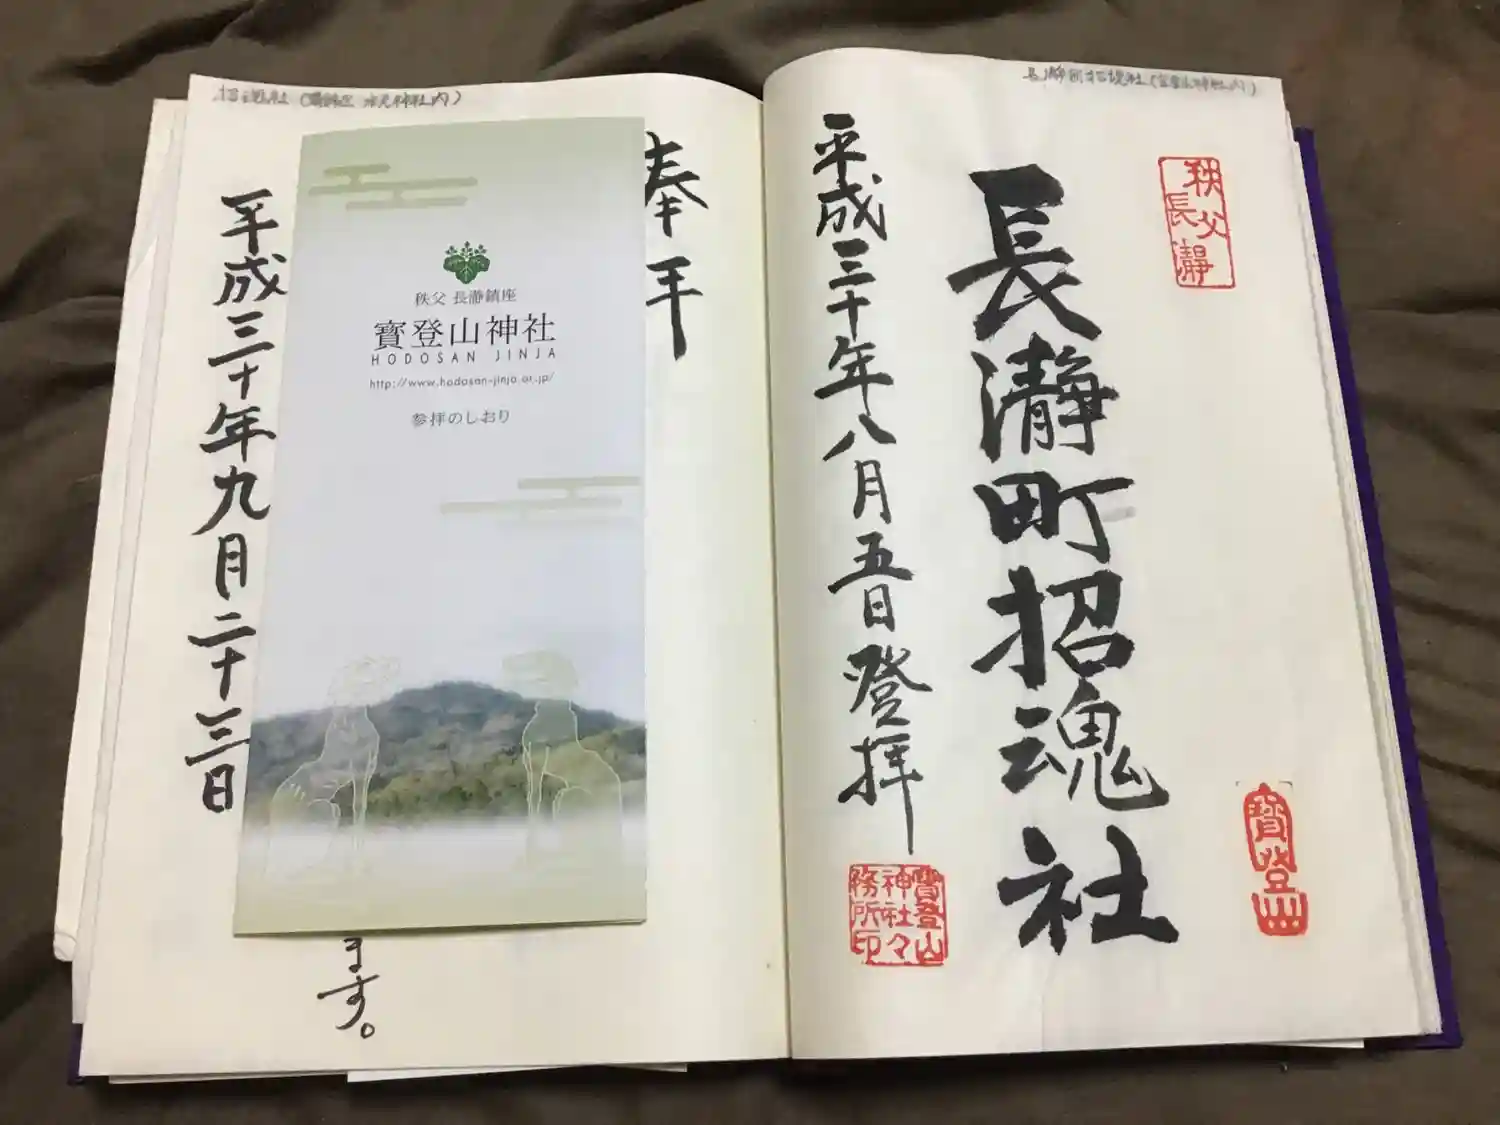 長瀞町招魂社(宝登山神社内)
秩父
長瀞
長瀞町招魂社
寳登山
平成三十年八月五日登拝
寳登山
神社々
務所印
招魂社(
神社内)
奉拝
秩父 長瀞鎮座
寳登山神社
HODOSAN JINJA
http://www.hodosan-jinja.or.jp/
参拝のしおり
ます。
平成三十年九月二十三日